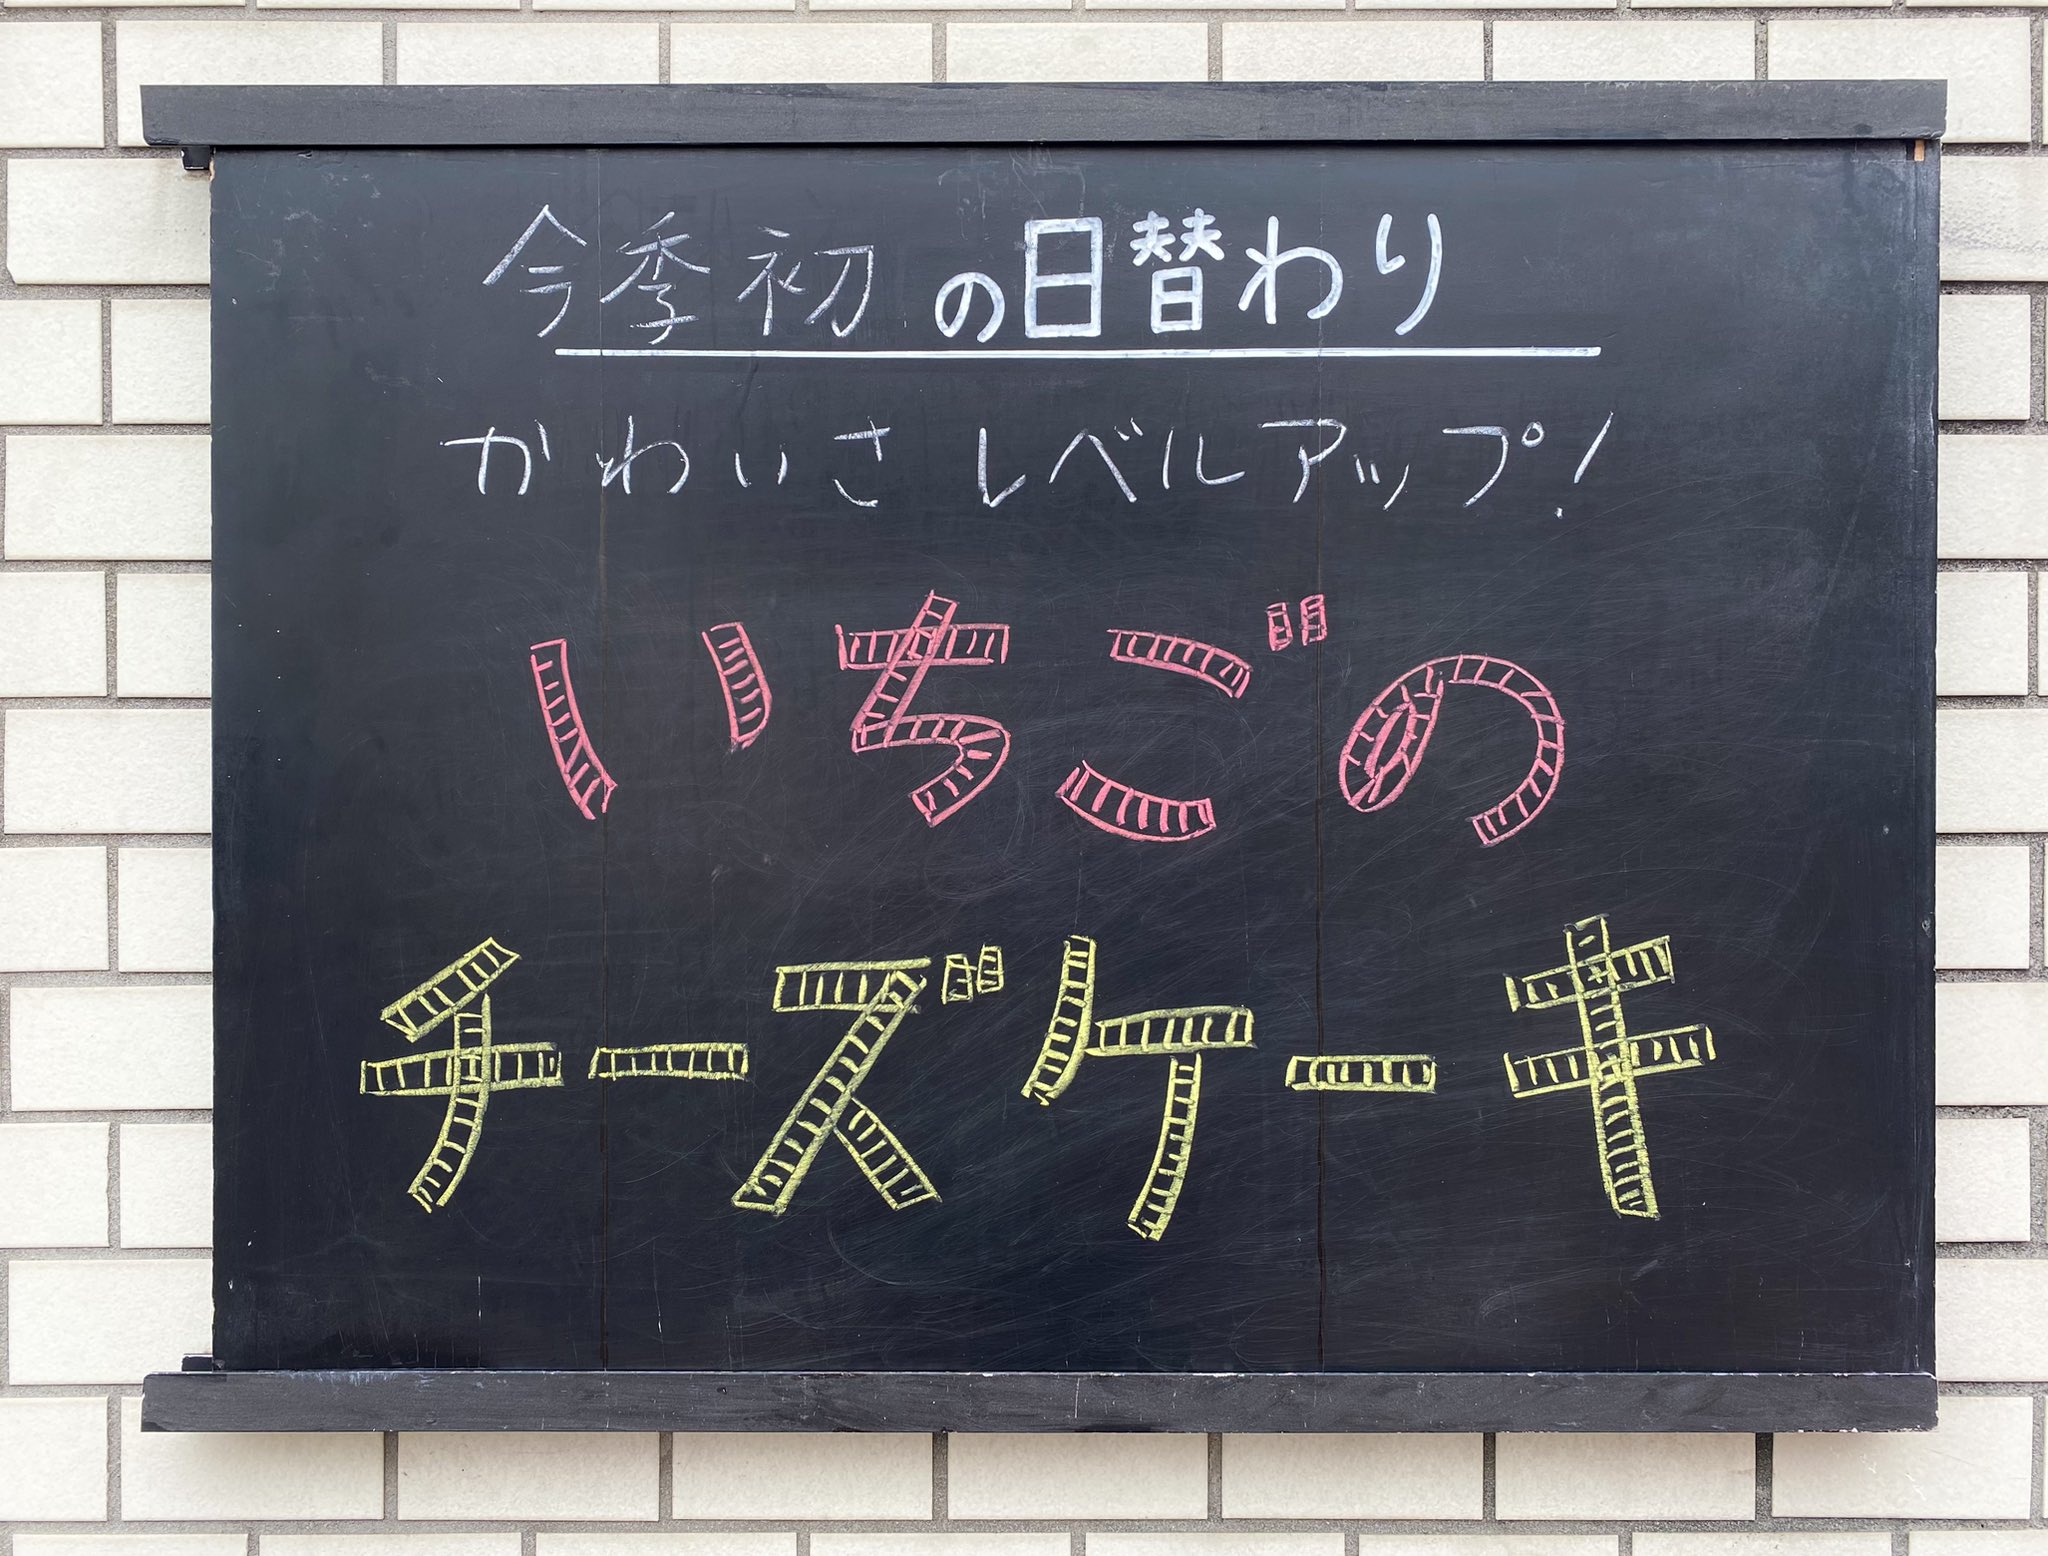 今季初の日替わり
かわいさレベルアップ!
いちごの
チーズケーキ